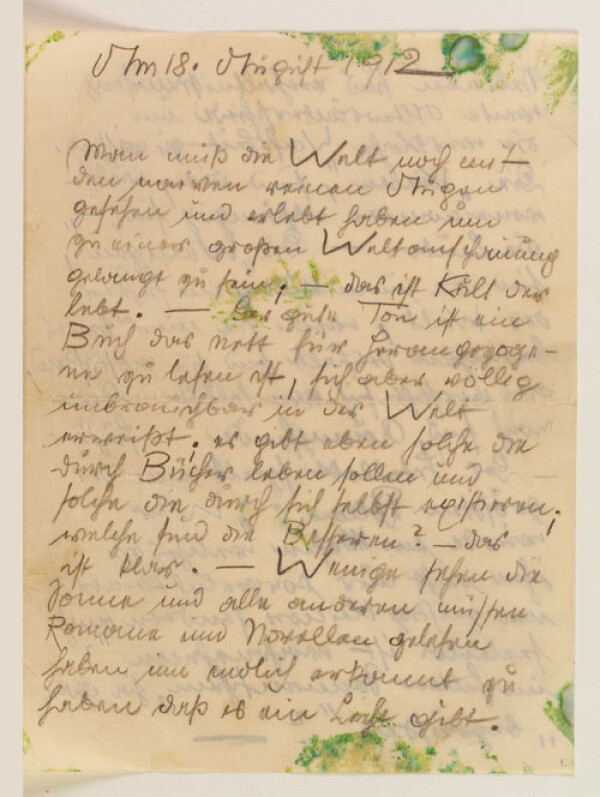 Am 18. August 1912
Man muß die Welt noch mit
den naiven reinen Augen
gesehen und erlebt haben um
zu einer großen Weltanschauung
gelangt zu sein; — das ist Kult der
lebt. — Der gute Ton ist ein
Buch das nett für Herangezoge-
ne zu lesen ist, sich aber völlig
unbrauchbar in der Welt
erweißt; es gibt eben solche die
durch Bücher leben sollen und
solche die durch sich selbst existieren;
welche sind die Besseren? — das
ist klar. — Wenige sehen die
Sonne und alle anderen müssen
Romane und Novellen gelesen
haben um endlich erkannt zu
haben daß es ein Licht gibt.
1.